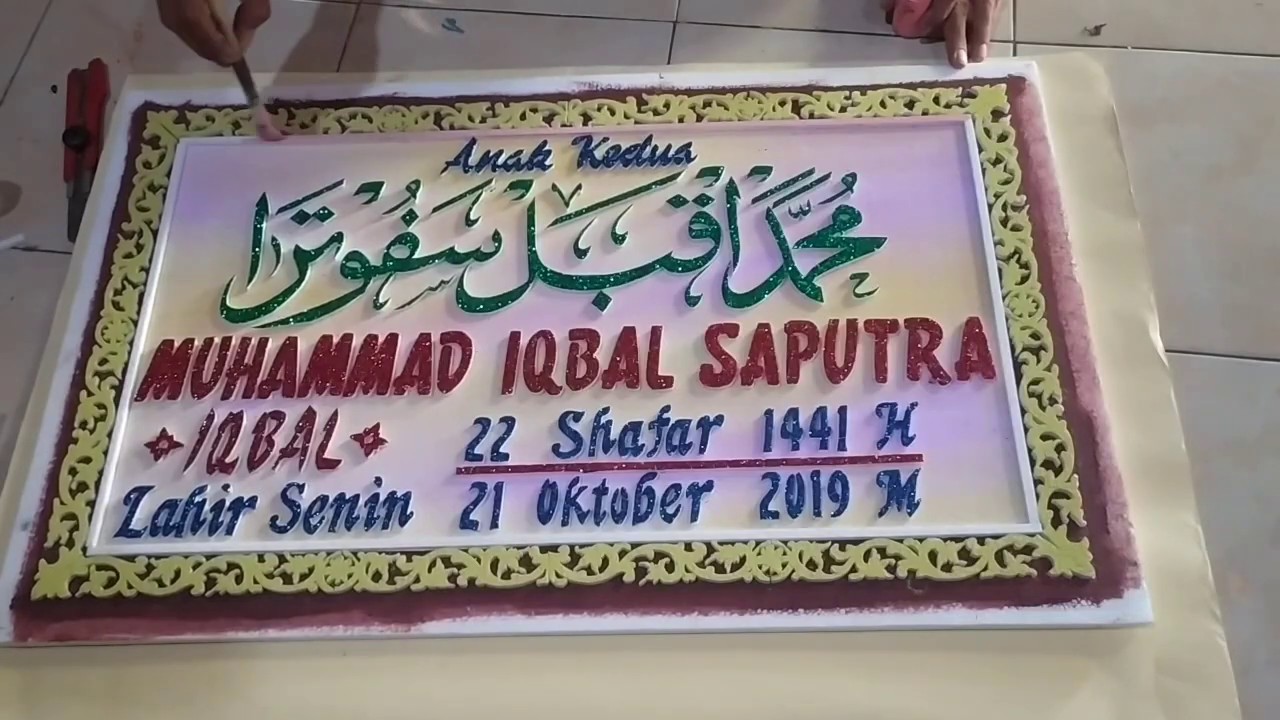 Anak Kedua
محمد اقبل سفوترا
MUHAMMAD IQBAL SAPUTRA
IQBAL 22 Shafar 1441 H
Lahir Senin 21 Oktober 2019 M